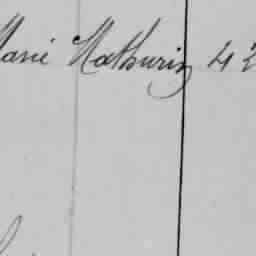 Marie Mathurin 4